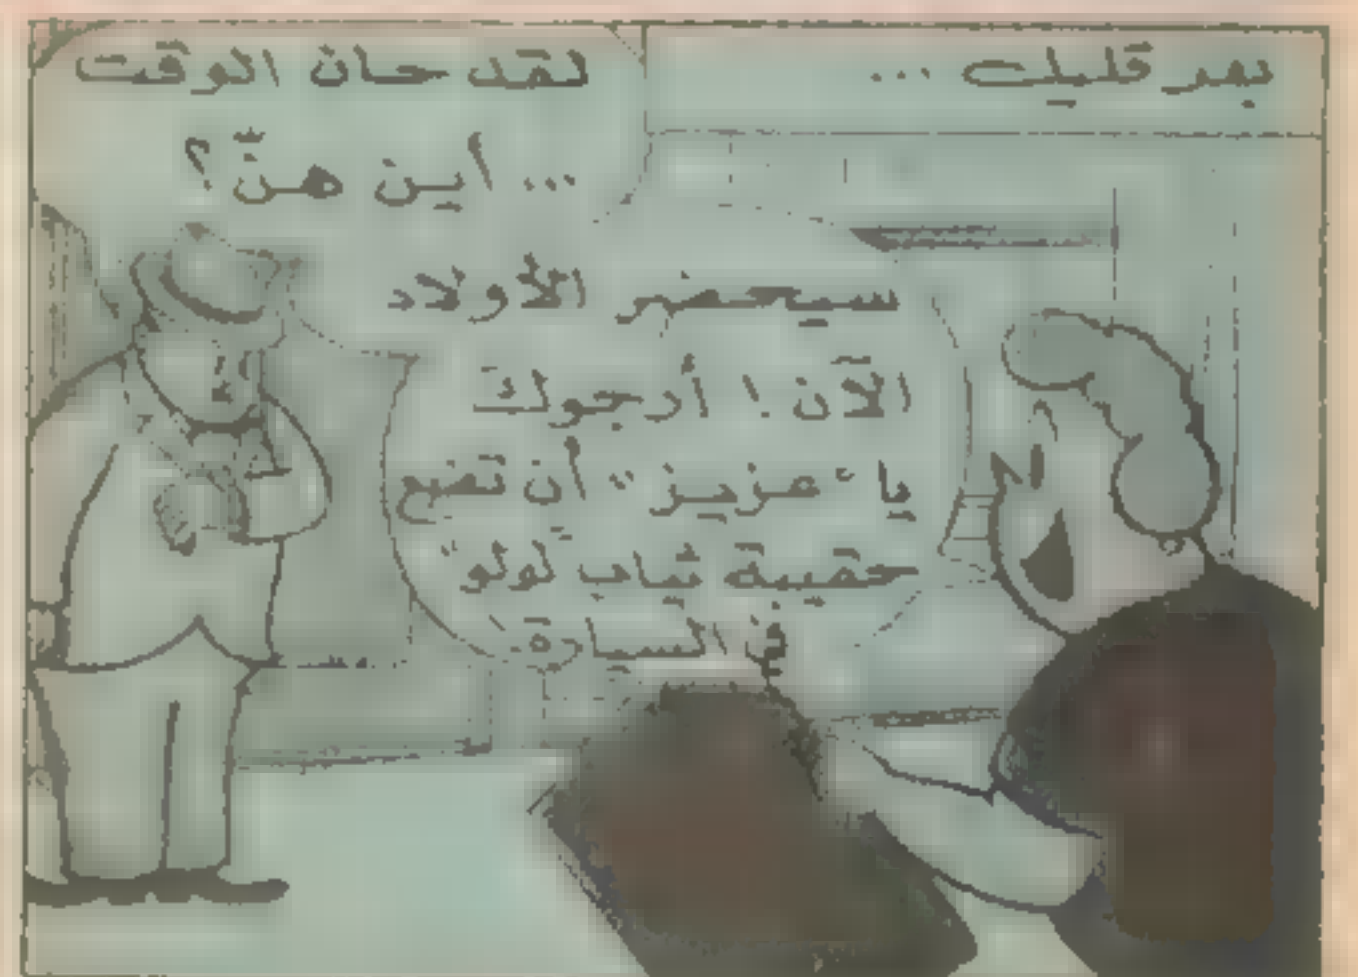 بعد قليل ...
لقد حان الوقت
... أين هنّ ؟
سيحضر الأولاد
الآن ! أرجوكَ
يا "عزيز" أن تضع
حقيبة ثياب "لولو"
في السيارة.